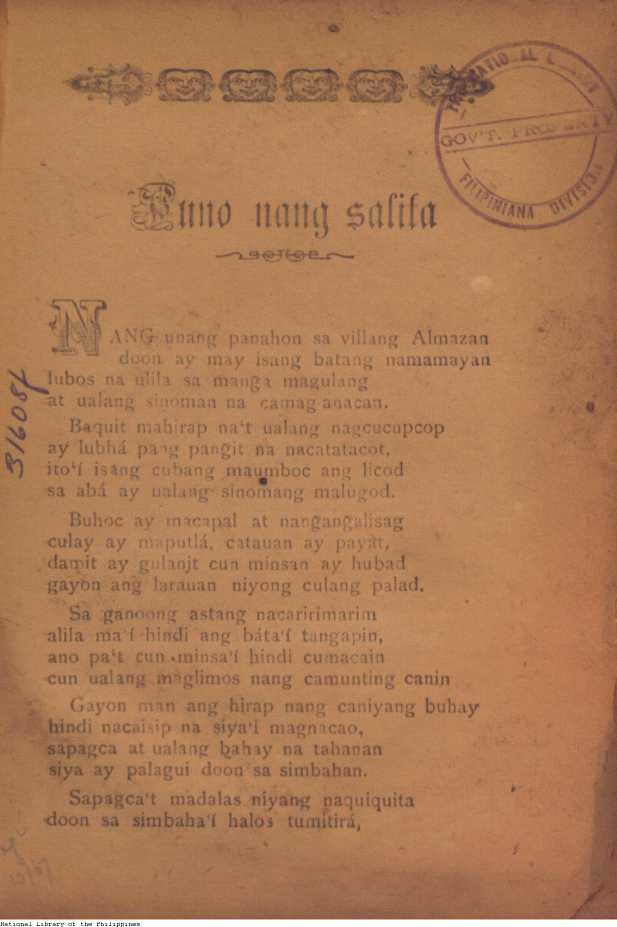 THE NATIONAL LIBRARY
GOV'T. PROPERTY
FILIPINIANA DIVISION
Puno nang salita
NANG unang panahon sa villang Almazan
doon ay may isang batang namamayan
lubos na ulila sa mang̃a magulang
at ualang sinoman na camag-anacan.
Baquit mahirap na't ualang nagcucupcop
ay lubhá pang pang̃it na nacatatacot,
ito'í isang cubang maumboc ang licod
sa abá ay ualang sinomang malugod.
Buhoc ay macapal at nang̃ang̃alisag
culay ay maputlá, catauan ay payat,
damit ay gulanit cun minsan ay hubad
gayon ang larauan niyong culang palad.
Sa ganoong astang nacaririmarim
alila ma'í hindi ang báta'í tangapin,
ano pa't cun minsa'í hindi cumacain
cun ualang maglimos nang camunting canin
Gayon man ang hirap nang caniyang buhay
hindi nacaisip na siya'í magnacao,
sapagca at ualang bahay na tahanan
siya ay palagui doon sa simbahan.
Sapagca't madalas niyang naquiquita
doon sa simbaha'í halos tumitirá,
31608f
National Library of the Philippines